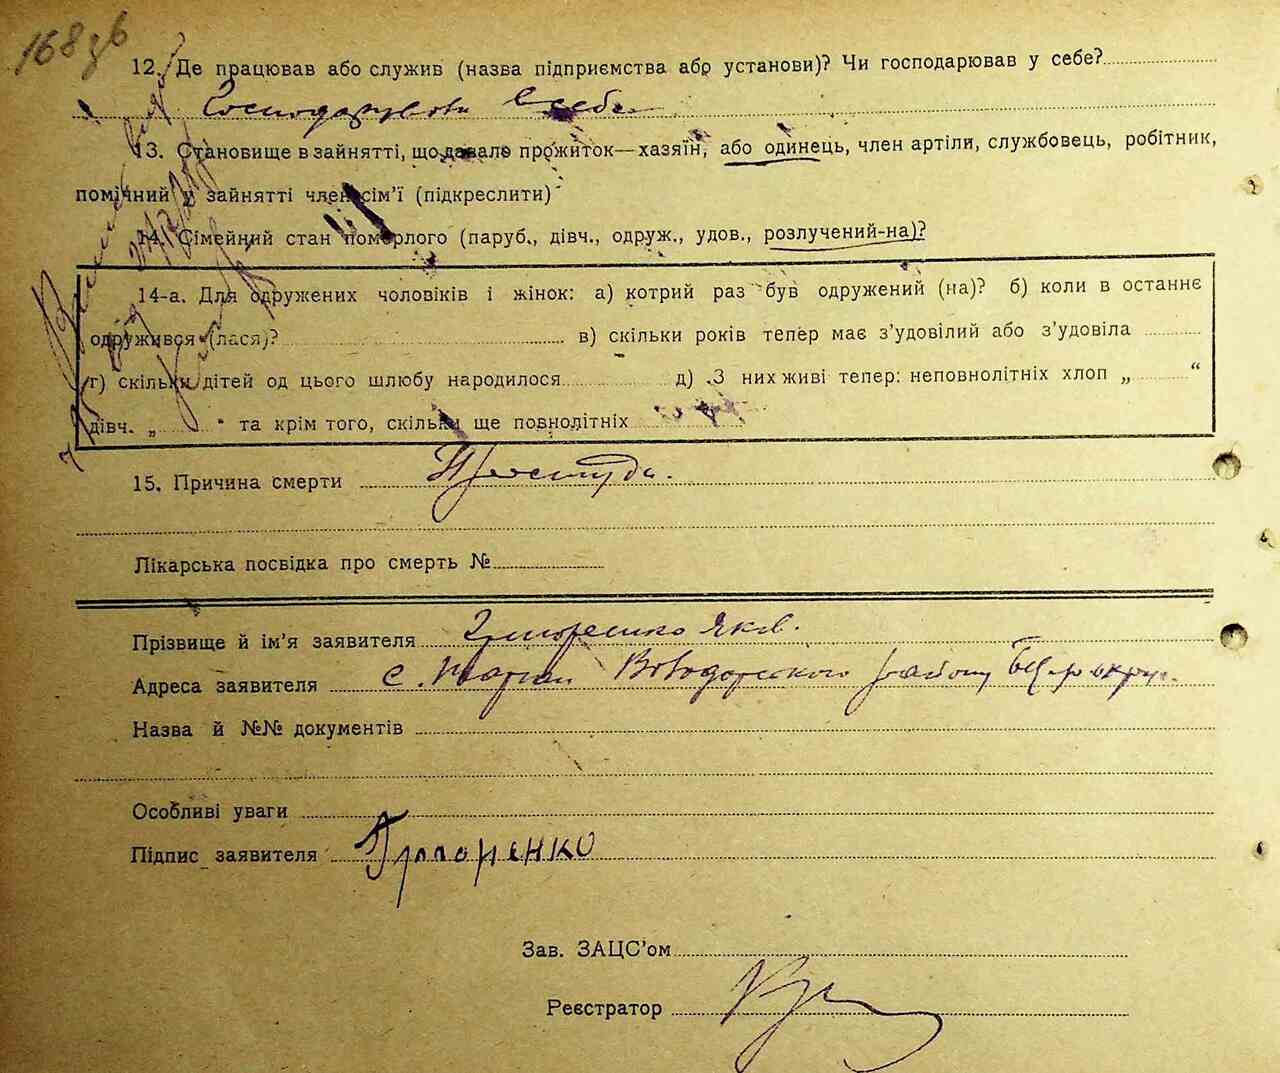 168 зв
12. Де працював або служив (назва підприємства або установи)? Чи господарював у себе?
Господарював в себе
13. Становище в зайнятті, що давало прожиток—хазяїн, або одинець, член артіли, службовець, робітник,
помічний у зайнятті член сім’ї (підкреслити)
14. Сімейний стан померлого (паруб., дівч., одруж., удов., розлучений-на)?
14-а. Для одружених чоловіків і жінок: а) котрий раз був одружений (на)? б) коли в останнє
одружився (лася)? в) скільки років тепер має з’удовілий або з’удовіла
г) скільки дітей од цього шлюбу народилося д) З них живі тепер: неповнолітніх хлоп „ “
дівч. „ “ та крім того, скільки ще повнолітніх
15. Причина смерти Простуда.
Лікарська посвідка про смерть №
Прізвище й ім’я заявителя
Адреса заявителя с. району
Назва й №№ документів
Особливі уваги
Підпис заявителя
Зав. ЗАЦС’ом
Реєстратор